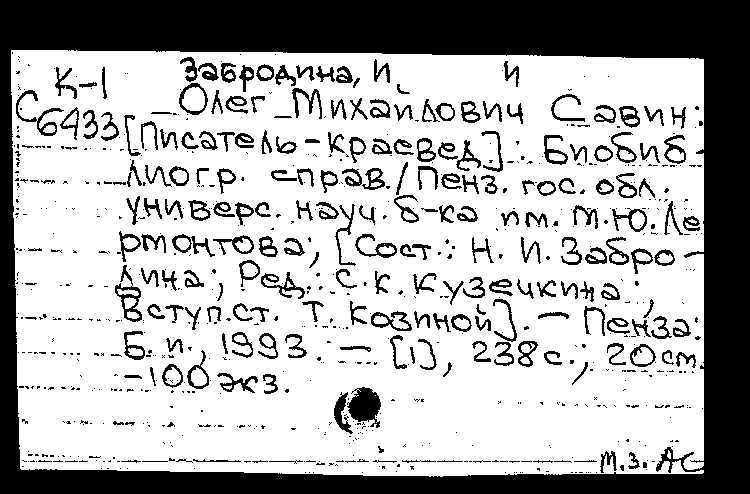 Забродина, И. И
К-1
С 6433
Олег Михайлович Савин:
[Писатель-краевед]: Биобиб-
лиогр. справ./Пенз. гос. обл.
универс. науч. б-ка им. М.Ю. Ле
рмонтова; [Сост.: Н. И. Забро-
дина; Ред.: С. К. Кузечкина;
Вступ. ст. Т. Козиной]. — Пенза:
Б. и., 1993. — [1], 238 с.; 20 см.
-100 экз.
М.З. АС